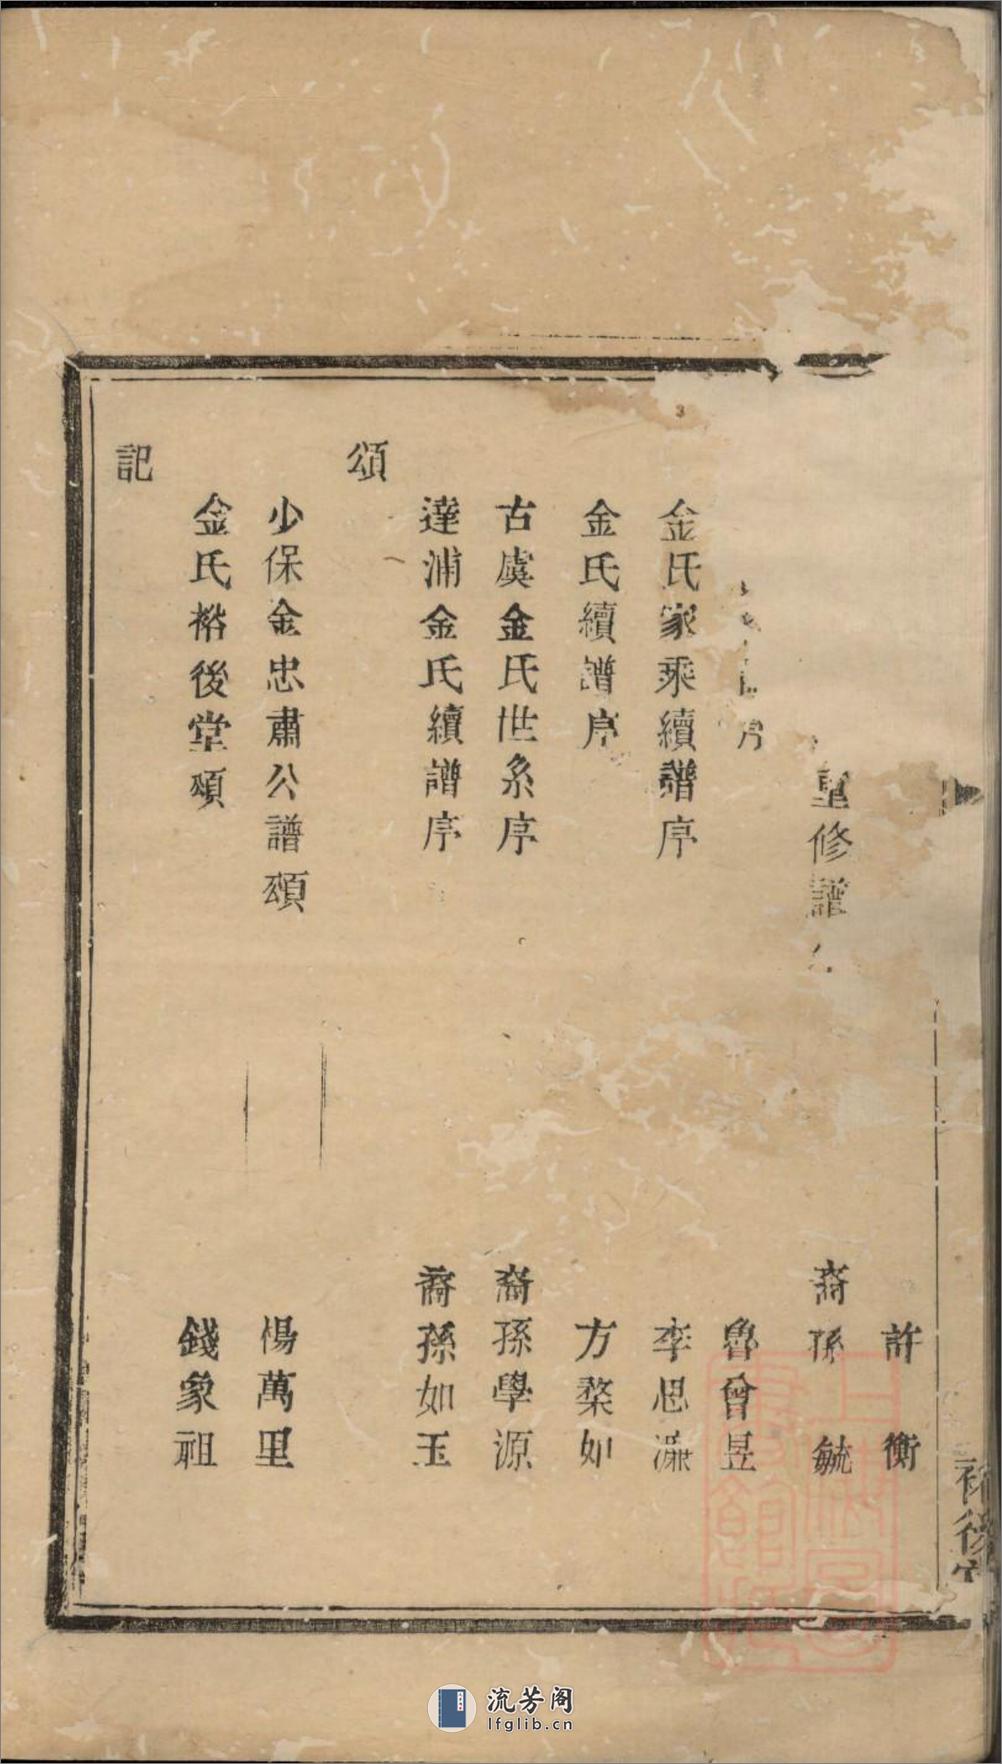 許衡
重修譜
裔孫毓
魯曾昱
金氏家乘續譜序
李思濂
金氏續譜序
方棨如
古虞金氏世系序
裔孫學源
達浦金氏續譜序
裔孫如玉
頌
少保金忠肅公譜頌
楊萬里
金氏裕後堂頌
錢象祖
記
裕後堂
流芳阁
lfglib.cn